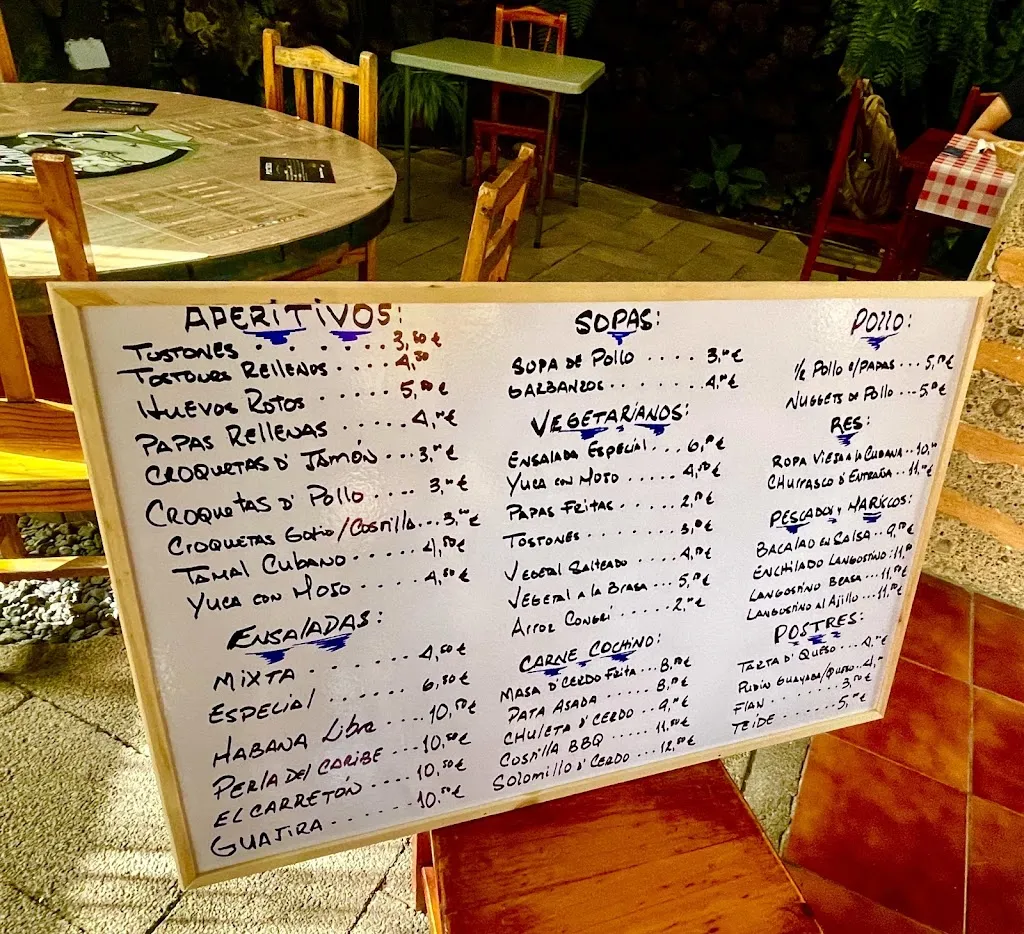 APERITIVOS:
TOSTONES ....... 3,50 €
TOSTONES RELLENOS .... 4,50
HUEVOS ROTOS ..... 5,00 €
PAPAS RELLENAS ..... 4,00 €
CROQUETAS D' JAMÓN ... 3,00 €
CROQUETAS D' POLLO .... 3,00 €
CROQUETAS GOFIO/COSTILLA... 3,00 €
TAMAL CUBANO ...... 4,50 €
YUCA CON MOJO ..... 4,50 €
ENSALADAS:
MIXTA ....... 4,50 €
ESPECIAL ..... 6,50 €
HABANA Libre ... 10,50 €
PERLA DEL CARIBE ... 10,50 €
EL CARRETÓN .... 10,50 €
GUAJIRA ...... 10,50 €
SOPAS:
SOPA DE POLLO .... 3,00 €
GARBANZOS ....... 4,00 €
VEGETARIANOS:
ENSALADA ESPECIAL ... 6,00 €
YUCA CON MOJO ..... 4,50 €
PAPAS FRITAS ...... 2,50 €
TOSTONES ........ 3,50 €
VEGETAL SALTEADO .... 4,50 €
VEGETAL A LA BRASA ... 5,50 €
ARROZ CONGRÍ ..... 2,00 €
CARNE COCHINO:
MASA D' CERDO FRITA .. 8,50 €
PATA ASADA ...... 8,50 €
CHULETA D' CERDO .... 9,00 €
COSTILLA BBQ ..... 11,50 €
SOLOMILLO D' CERDO ... 12,50 €
POLLO:
1/2 POLLO C/PAPAS ... 5,00 €
NUGGETS DE POLLO ... 5,00 €
RES:
ROPA VIEJA A LA CUBANA .. 10,00
CHURRASCO D' ENTRAÑA .. 11,00 €
PESCADOS Y MARISCOS:
BACALAO EN SALSA .. 9,50 €
ENCHILADO LANGOSTINO: 11,50
LANGOSTINO BRASA ... 11,50 €
LANGOSTINO AL AJILLO ... 11,50 €
POSTRES:
TARTA D' QUESO .... 4,00 €
PUDIN GUAYABA/QUESO .... 4,00
FLAN ........ 3,50 €
TEIDE ....... 5,00 €